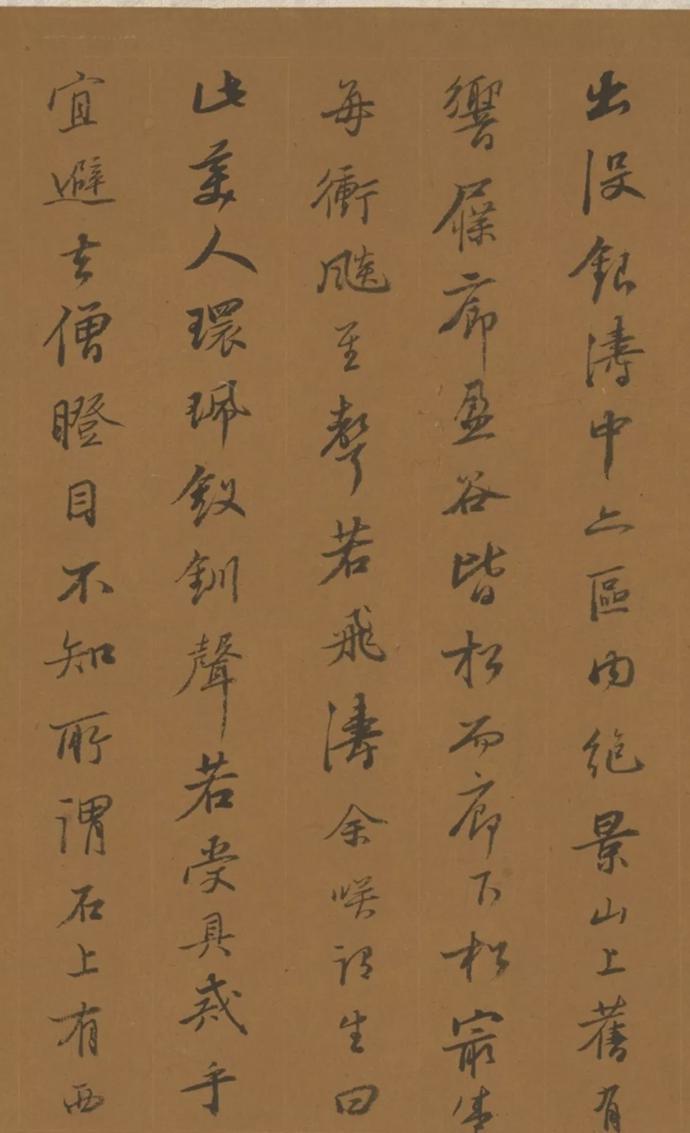 出没銀濤中亦區内絶景山上舊有
響屧廊盈谷皆松而廊下松最盛
每衝飈至聲若飛濤余咲謂生曰
此美人環珮釵釧聲若受具戒乎
宜避去僧瞪目不知所謂石上有西